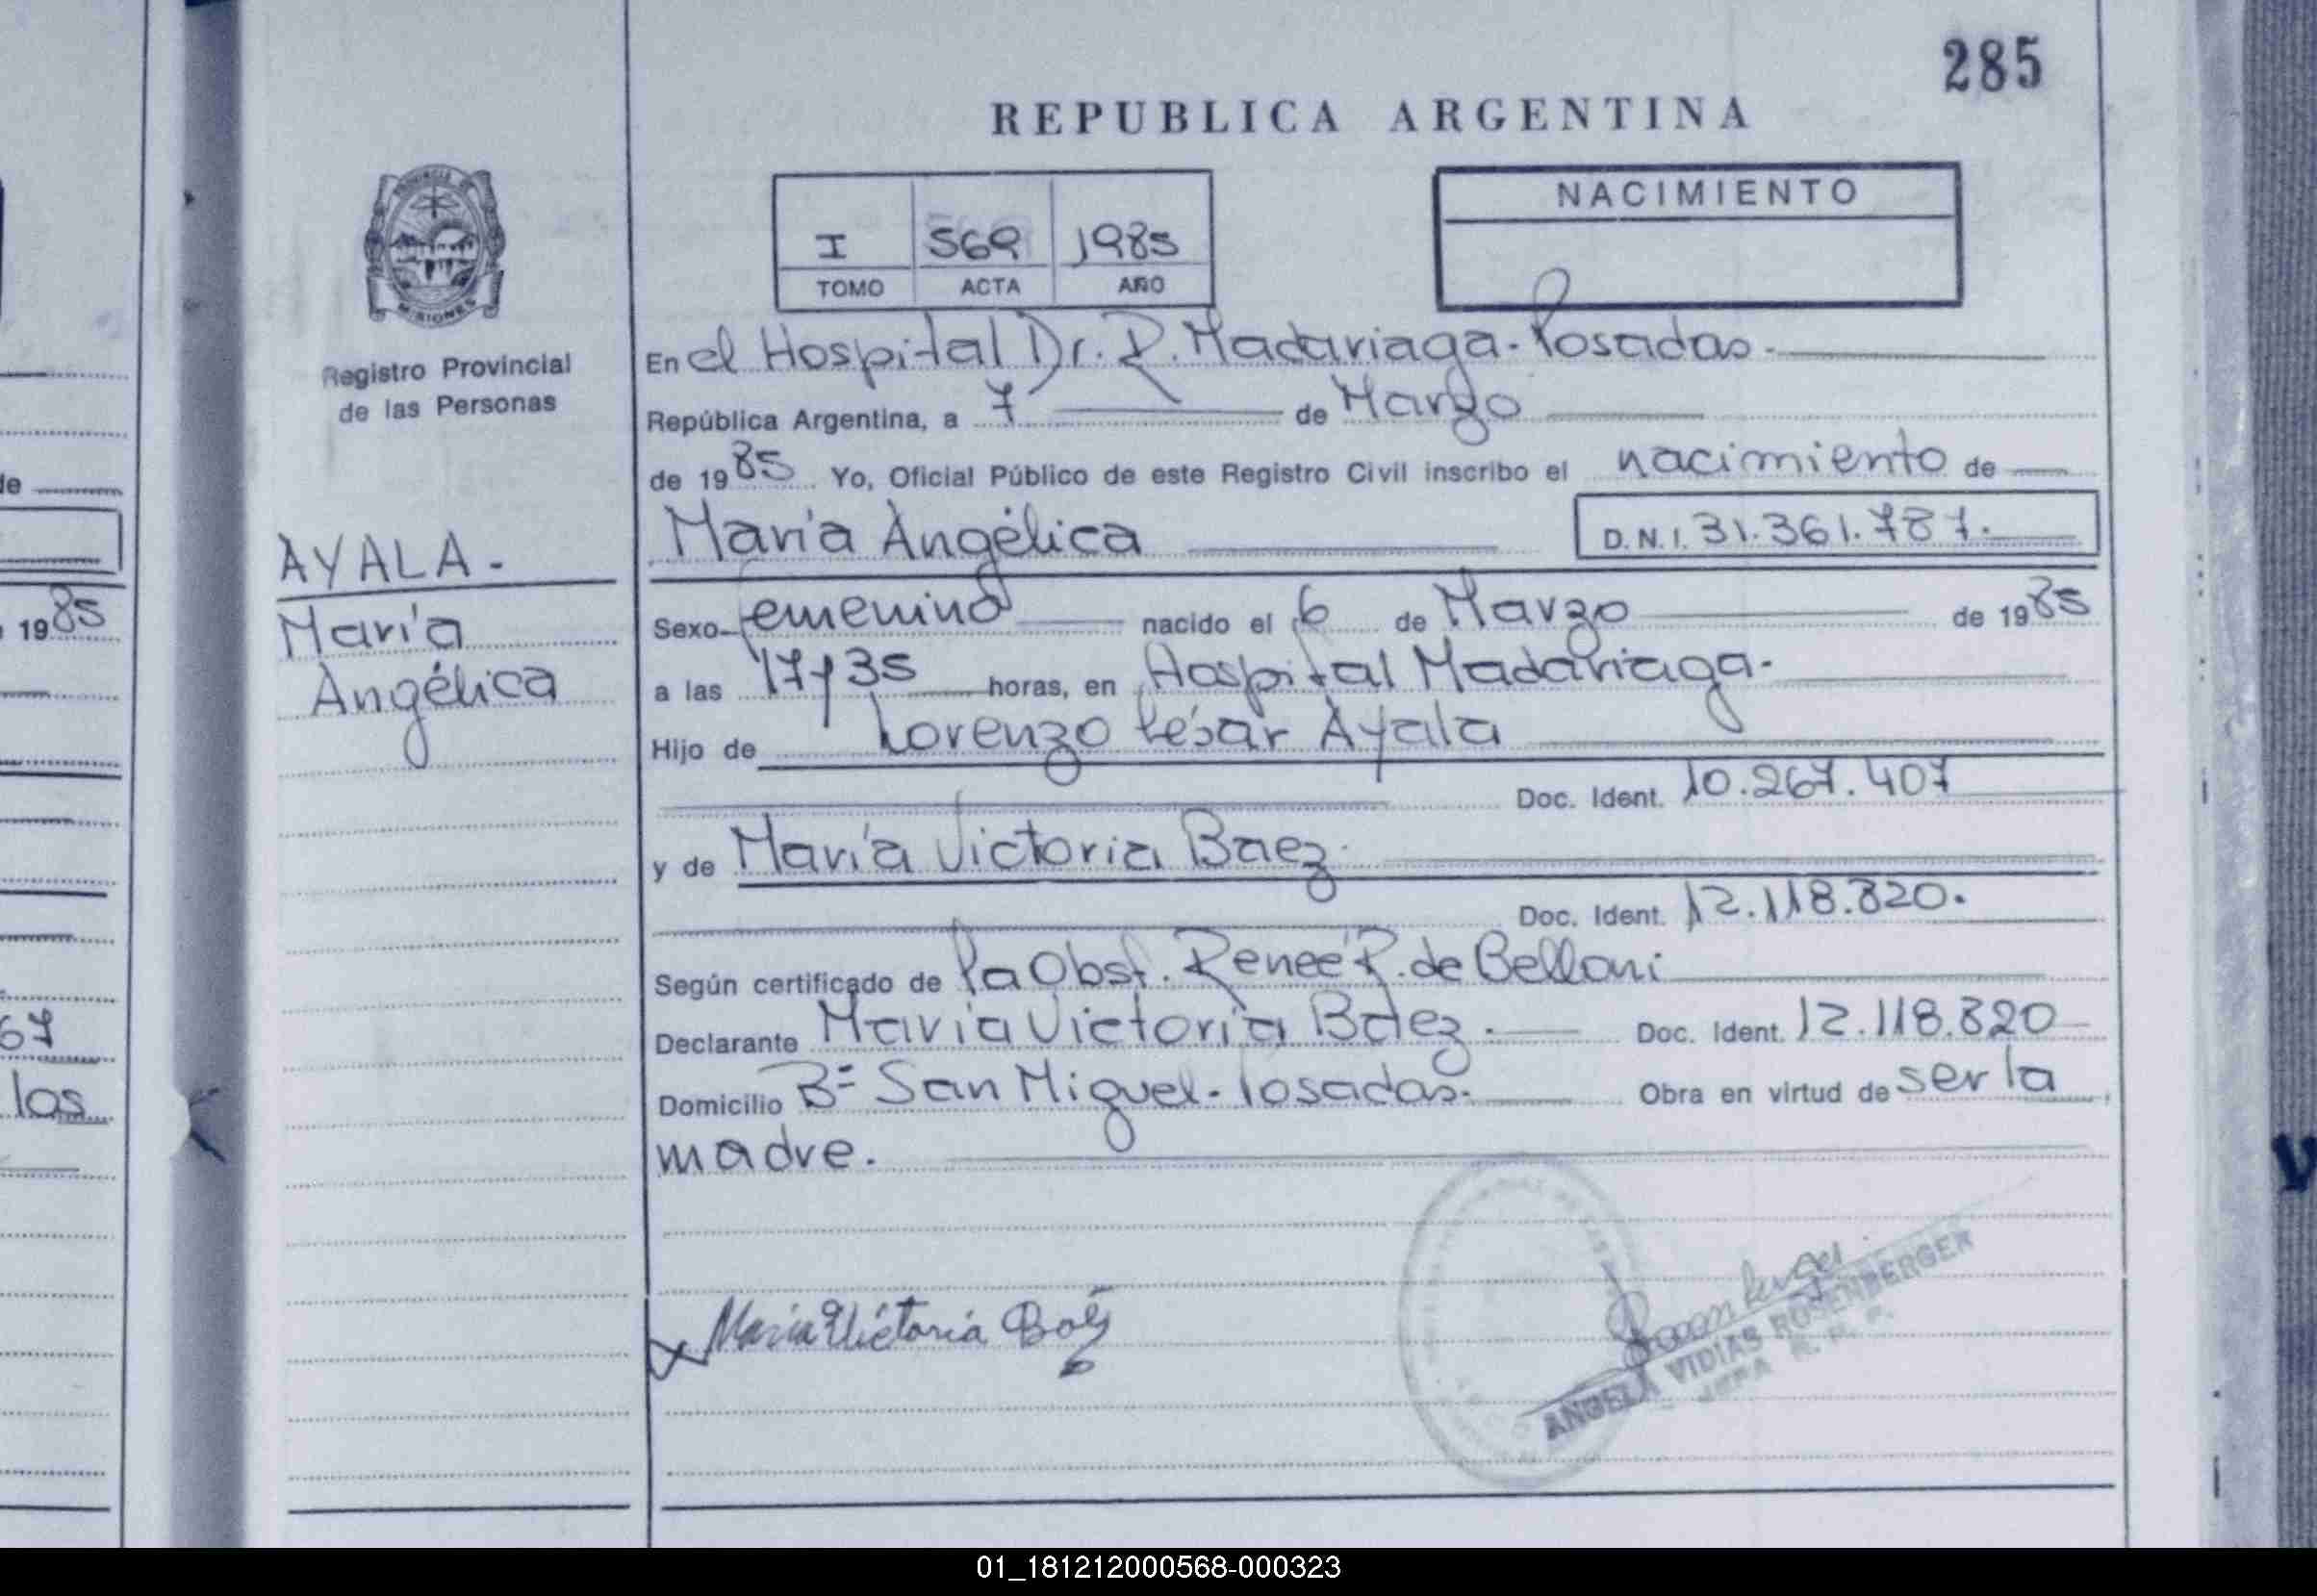 285
REPUBLICA ARGENTINA
NACIMIENTO
I 569 1985
TOMO ACTA AÑO
PROVINCIA DE
MISIONES
Registro Provincial
de las Personas
En el Hospital Dr. R. Madariaga - Posadas -
República Argentina, a 7 de Marzo
de 1985 Yo, Oficial Público de este Registro Civil inscribo el nacimiento de
María Angélica D.N.I. 31.361.787.
AYALA -
María
Angélica
Sexo femenino nacido el 6 de Marzo de 1985
a las 17y35 horas, en Hospital Madariaga -
Hijo de Lorenzo César Ayala
Doc. Ident. 10.267.407
y de María Victoria Baez
Doc. Ident. 12.118.820.
Según certificado de la Obst. Reneé R. de Belloni
Declarante María Victoria Baez. Doc. Ident. 12.118.820
Domicilio Bº San Miguel - Posadas. Obra en virtud de ser la
madre.
María Victoria Baez
ANGELA VIDIAS ROSENBERGER
JEFA R. P. P.
de
1985
67
los
01_181212000568-000323